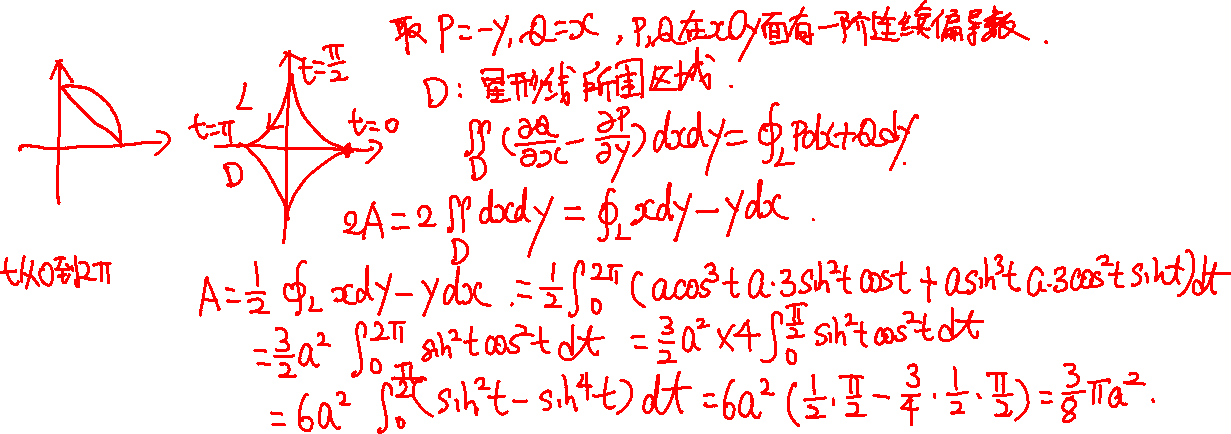 取 P=-y, Q=x , P,Q在xOy面有一阶连续偏导数.
D: 星形线所围区域.
t=π/2
L
t=π
t=0
D
∬_D (∂Q/∂x - ∂P/∂y) dxdy = ∮_L Pdx+Qdy.
2A = 2∬_D dxdy = ∮_L xdy - ydx .
t从0到2π
A = 1/2 ∮_L xdy - ydx . = 1/2 ∫_0^{2π} (acos³t a·3sin²t cost + asin³t a·3cos²t sint)dt
= 3/2 a² ∫_0^{2π} sin²t cos²t dt = 3/2 a² ×4 ∫_0^{π/2} sin²t cos²t dt
= 6a² ∫_0^{π/2} (sin²t - sin⁴t) dt = 6a² (1/2·π/2 - 3/4·1/2·π/2) = 3/8 πa².